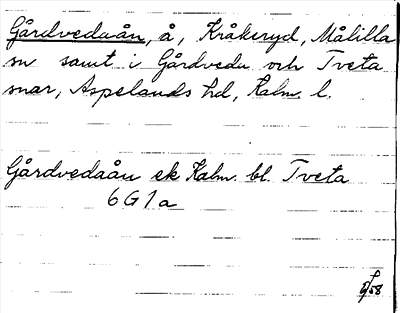 Gårdvedaån, å, Kråkeryd, Målilla
sn samt i Gårdveda och Tveta
snar, Aspelands hd, Kalm. l.
Gårdvedaån ek Kalm. bl. Tveta
6G1a